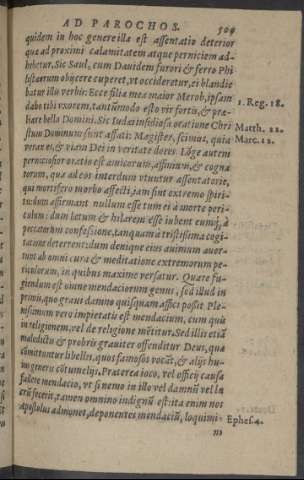 AD PAROCHOS. 504
quidem in hoc genere illa est assentatio deterior
quæ ad proximi calamitatem atque perniciem ad-
hibetur. Sic Saul, cum Dauidem furori & ferro Phi
listæorum obijcere cuperet, vt occideretur, ei blandie
batur illis verbis: Ecce filia mea maior Merob, ipsam
dabo tibi vxorem, tantùmodo esto vir fortis, & præ- 1. Reg. 18.
liare bella Domini. Sic Iudæi insidiosa oratione Chri
stum Dominum sunt affati: Magister, scimus, quia Matth. 22.
verax es, & viam Dei in veritate doces. Lõge autem Marc. 12.
perniciosior oratio est amicorum, affinium, & cogna
torum, qua ad eos interdum vtuntur assentatoriè,
qui mortifero morbo affecti, iam sint extremo spiri-
tu: dum affirmant nullum esse tum ei à morte peri-
culum: dum lætum & hilarem esse iubent eumq́; à
peccatorum confessione, tanquam à tristissima cogi-
tatione deterrent: dum denique eius animum auer-
tunt ab omni cura & meditatione extremorum pe-
riculorum, in quibus maximè versatur. Quare fu-
giendum est omne mendaciorum genus, sed illud in
primis, quo graui damno quisquam affici possit. Ple-
nissimum verò impietatis est mendacium, cum quis
in religionem, vel de religione mẽtitur. Sed illis etiã
maledictis & probris grauiter offenditur Deus, quæ
committuntur libellis, quos famosos vocãt, & alijs hu-
ius generis cõtumelijs. Præterea ioco, vel officij causa
fallere mendacio, vt si nemo in illo vel damnũ vel lu
crũ fecerit, tamen omnino indignũ est: ita enim nos
Apostolus admonet, deponentes mendaciũ, loquimi- Ephes. 4.
ni